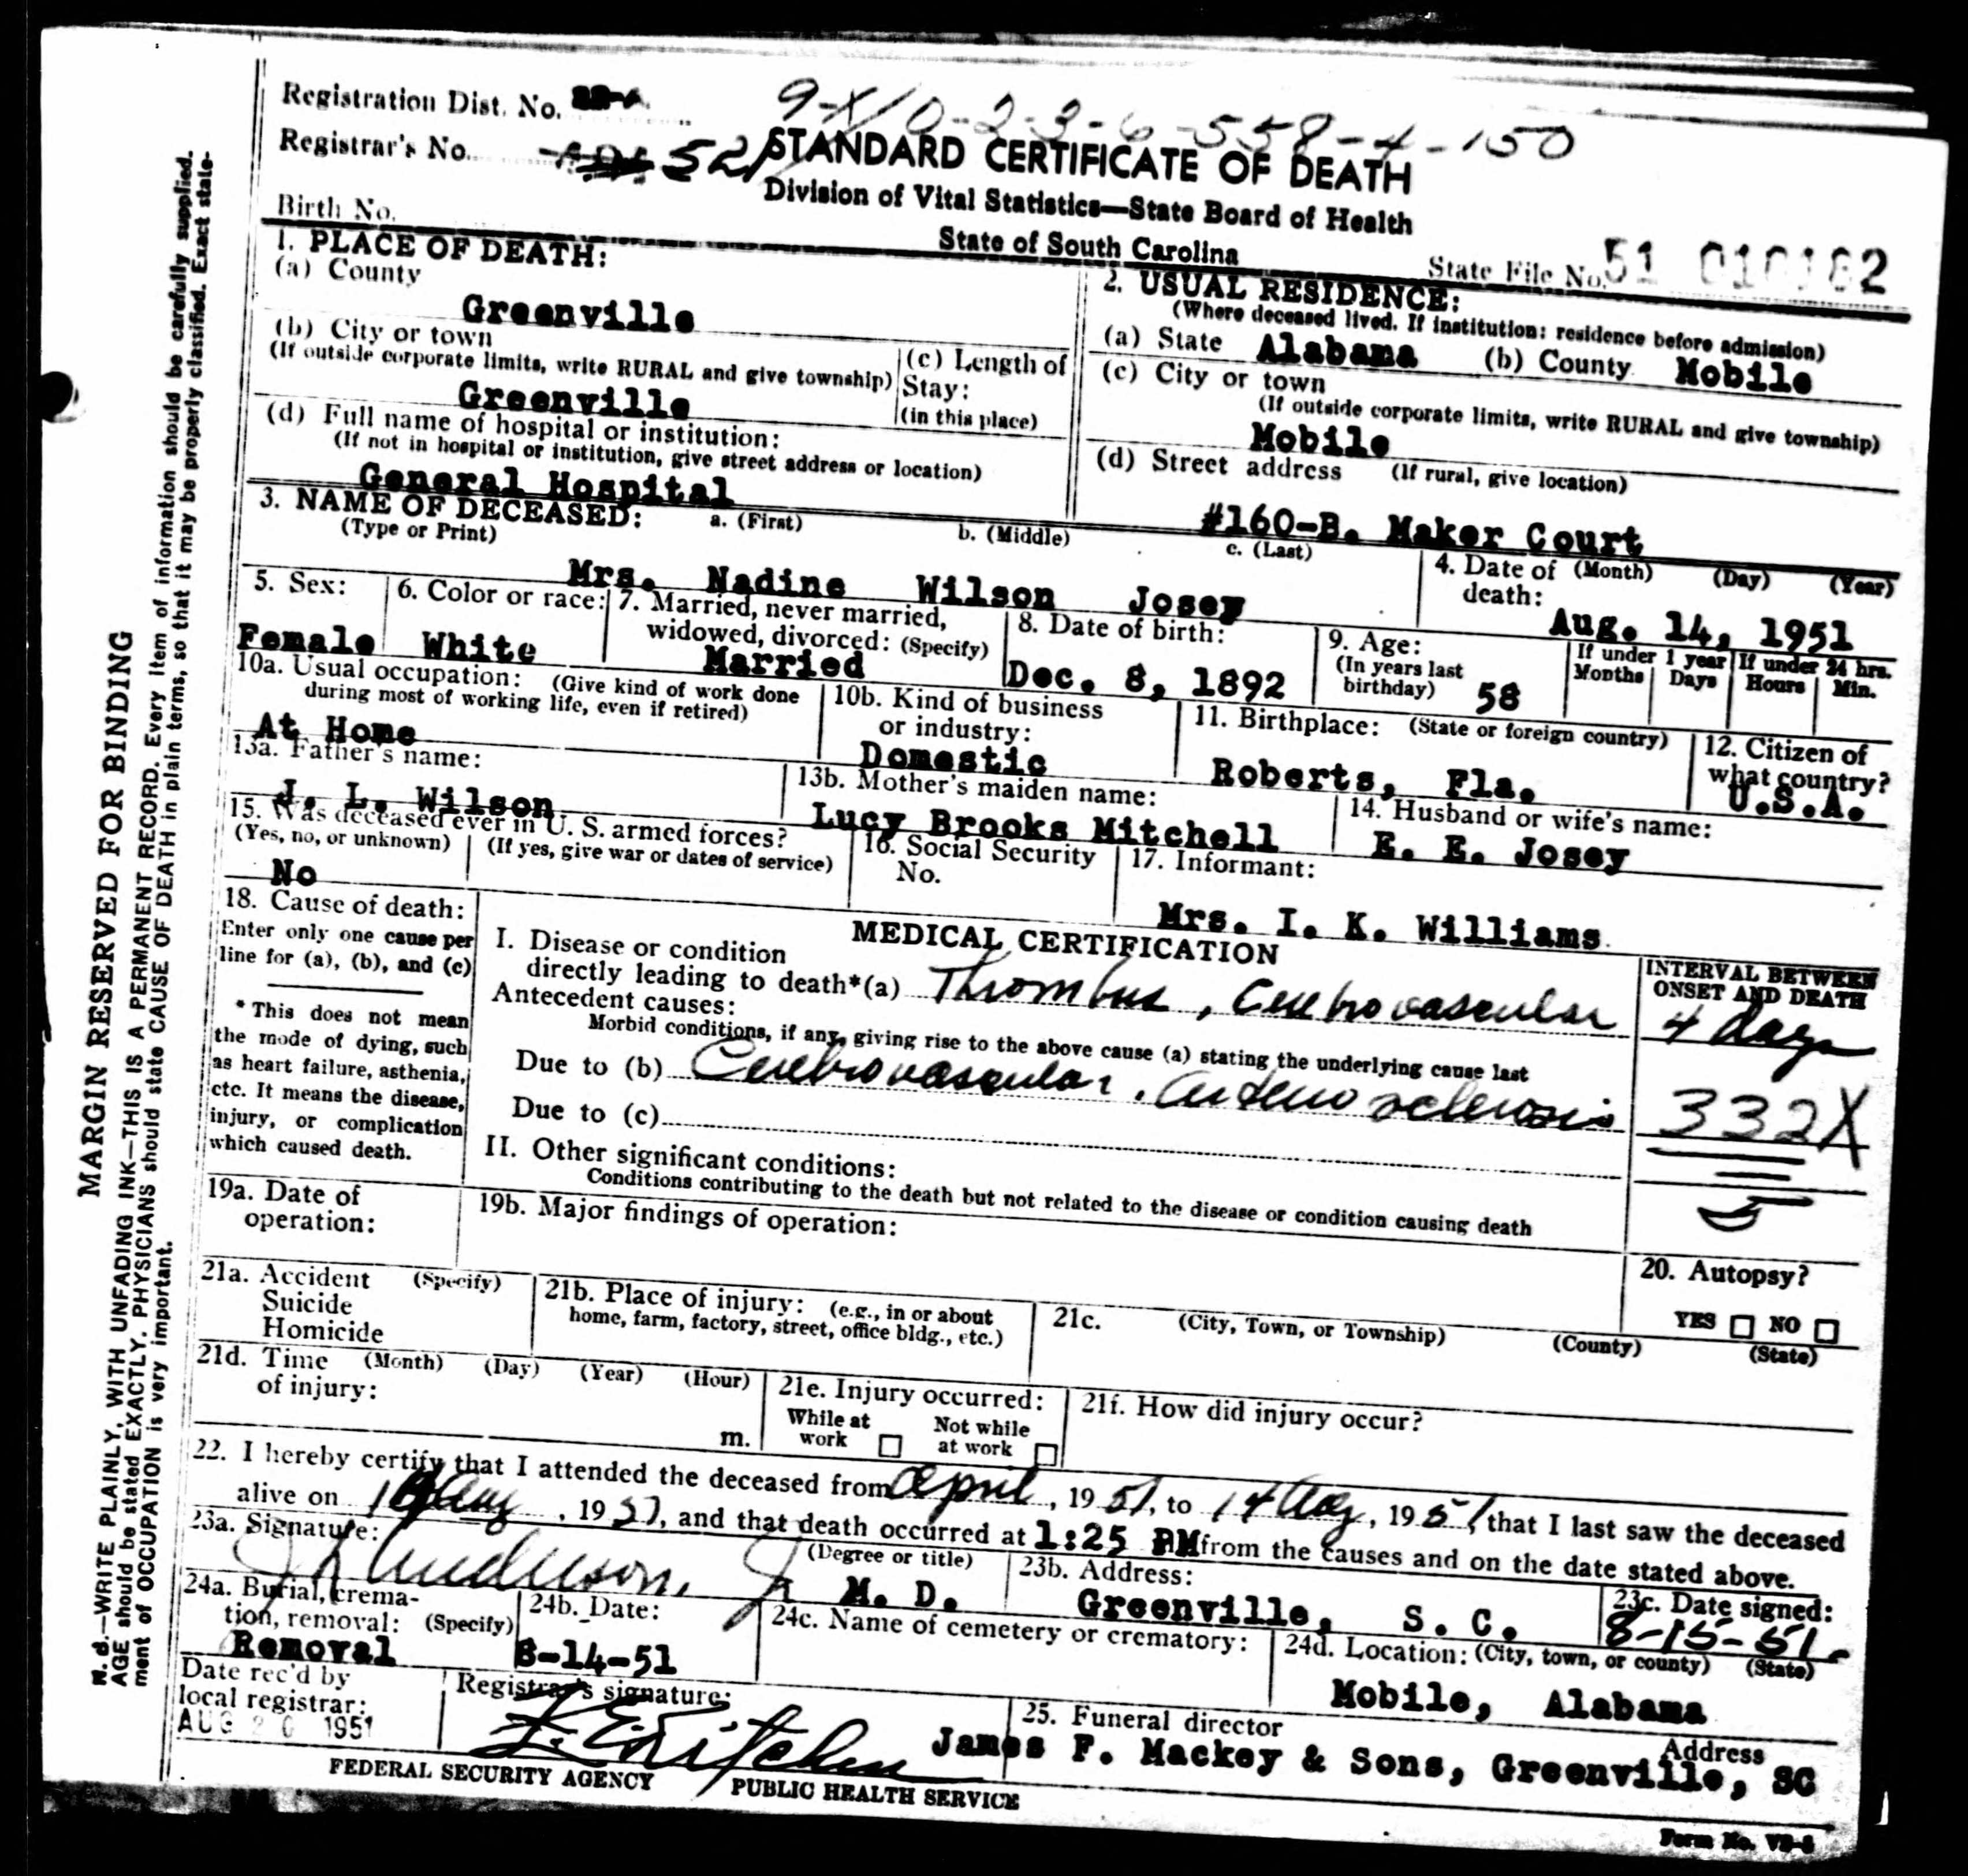 Registration Dist. No.
9-X10-2-3-6-558-4-150
Registrar's No. 521
STANDARD CERTIFICATE OF DEATH
Division of Vital Statistics—State Board of Health
Birth No.
State of South Carolina
State File No. 51
1. PLACE OF DEATH:
(a) County
Greenville
(b) City or town
(If outside corporate limits, write RURAL and give township)
Greenville
(c) Length of
Stay:
(in this place)
(d) Full name of hospital or institution:
(If not in hospital or institution, give street address or location)
General Hospital
2. USUAL RESIDENCE:
(Where deceased lived. If institution: residence before admission)
(a) State Alabama (b) County Mobile
(c) City or town
(If outside corporate limits, write RURAL and give township)
Mobile
(d) Street address (If rural, give location)
#160-B. Maker Court
3. NAME OF DECEASED: a. (First) b. (Middle) c. (Last)
(Type or Print)
Mrs. Nadine Wilson Josey
4. Date of (Month) (Day) (Year)
death:
Aug. 14, 1951
5. Sex:
Female
6. Color or race:
White
7. Married, never married,
widowed, divorced: (Specify)
Married
8. Date of birth:
Dec. 8, 1892
9. Age:
(In years last
birthday) 58
If under 1 year If under 24 hrs.
Months Days Hours Min.
10a. Usual occupation: (Give kind of work done
during most of working life, even if retired)
At Home
10b. Kind of business
or industry:
Domestic
11. Birthplace: (State or foreign country)
Roberts, Fla.
12. Citizen of
what country?
U.S.A.
13a. Father's name:
J. L. Wilson
13b. Mother's maiden name:
Lucy Brooks Mitchell
14. Husband or wife's name:
E. E. Josey
15. Was deceased ever in U. S. armed forces?
(Yes, no, or unknown) (If yes, give war or dates of service)
No
16. Social Security
No.
17. Informant:
Mrs. I. K. Williams.
18. Cause of death:
Enter only one cause per
line for (a), (b), and (c)
* This does not mean
the mode of dying, such
as heart failure, asthenia,
etc. It means the disease,
injury, or complication
which caused death.
MEDICAL CERTIFICATION
I. Disease or condition
directly leading to death*(a) Thrombus, Cerebrovascular
Antecedent causes:
Morbid conditions, if any, giving rise to the above cause (a) stating the underlying cause last
Due to (b) Cerebrovascular, arteriosclerosis
Due to (c)
II. Other significant conditions:
Conditions contributing to the death but not related to the disease or condition causing death
INTERVAL BETWEEN
ONSET AND DEATH
4 days
332X
19a. Date of
operation:
19b. Major findings of operation:
20. Autopsy?
YES NO
21a. Accident (Specify)
Suicide
Homicide
21b. Place of injury: (e.g., in or about
home, farm, factory, street, office bldg., etc.)
21c. (City, Town, or Township) (County) (State)
21d. Time (Month) (Day) (Year) (Hour)
of injury:
m.
21e. Injury occurred:
While at Not while
work at work
21f. How did injury occur?
22. I hereby certify that I attended the deceased from April, 1951, to 14 Aug, 1951, that I last saw the deceased
alive on Aug, 1951, and that death occurred at 1:25 PM from the causes and on the date stated above.
23a. Signature: (Degree or title)
Anderson, Jr M. D.
23b. Address:
Greenville, S. C.
23c. Date signed:
8-15-51.
24a. Burial, crema-
tion, removal: (Specify)
Removal
24b. Date:
8-14-51
24c. Name of cemetery or crematory:
24d. Location: (City, town, or county) (State)
Mobile, Alabama
Date rec'd by
local registrar:
AUG 20 1951
Registrar's signature:
25. Funeral director Address
James F. Mackey & Sons, Greenville, SC
FEDERAL SECURITY AGENCY PUBLIC HEALTH SERVICE
Form No. VS-
MARGIN RESERVED FOR BINDING
N. B.—WRITE PLAINLY, WITH UNFADING INK—THIS IS A PERMANENT RECORD. Every item of information should be carefully supplied.
AGE should be stated EXACTLY. PHYSICIANS should state CAUSE OF DEATH in plain terms, so that it may be properly classified. Exact state-
ment of OCCUPATION is very important.